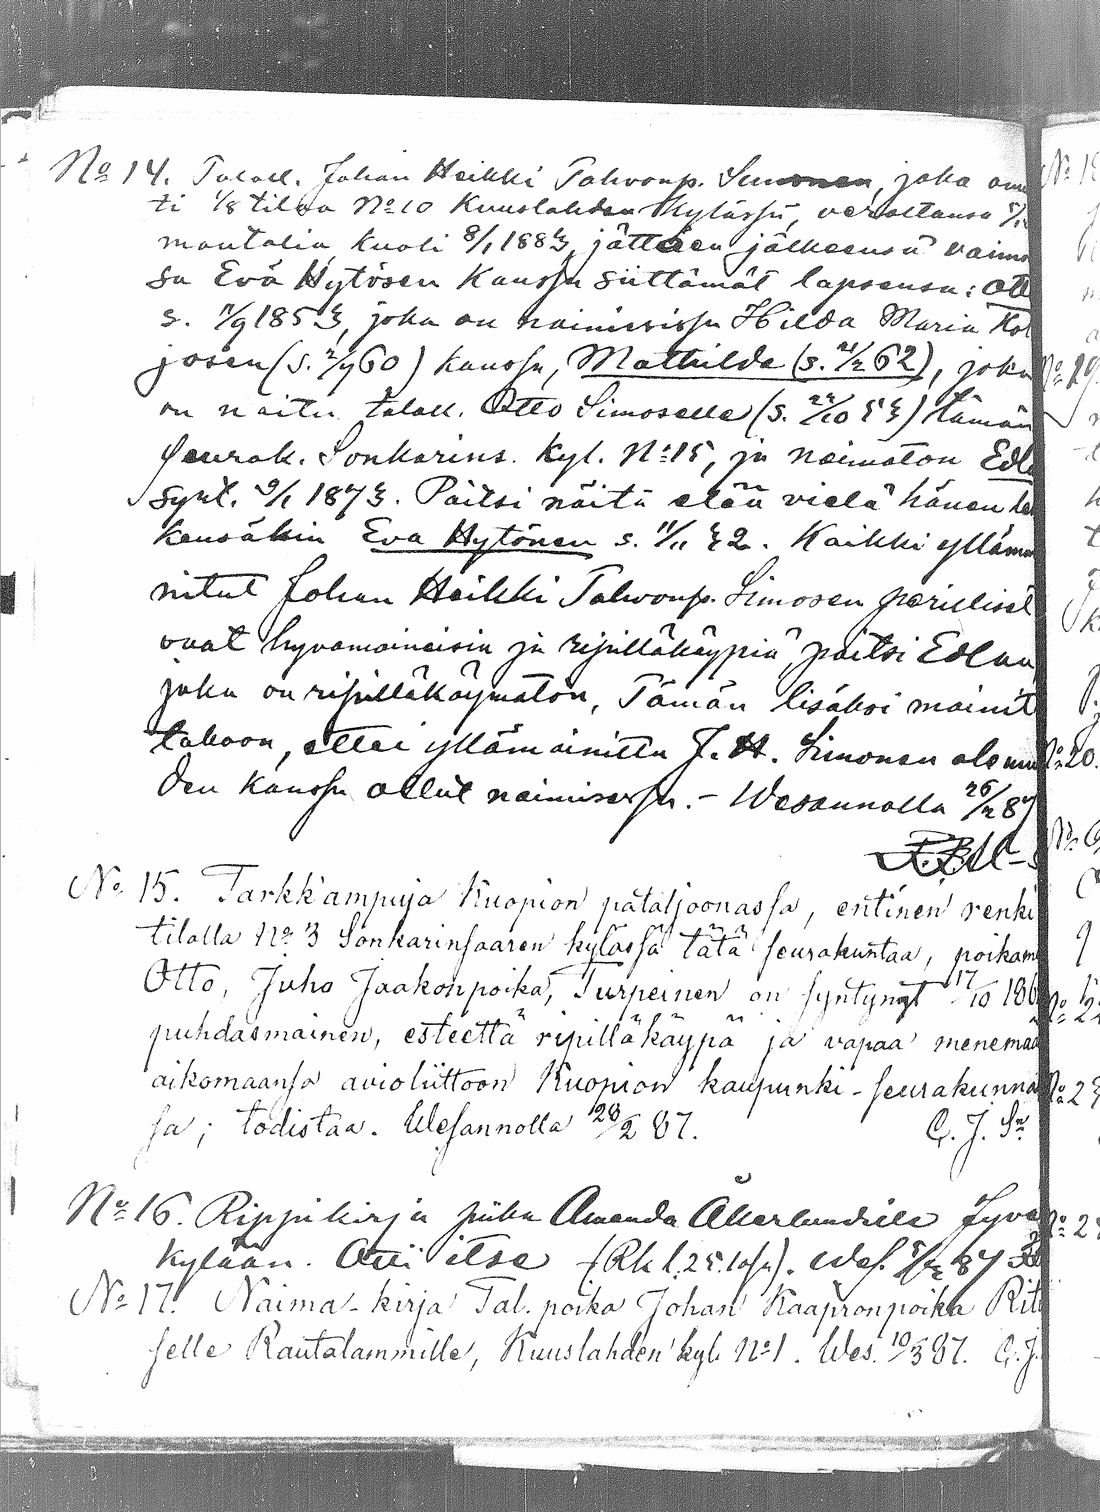 No 14. Talall. Johan Heikki Tahvonp. Simonen, joka omis
ti 1/8 tilaa No 10 Kuuslahden kylässä, verottansa
manttalia, kuoli 8/1 1883, jättäen jälkeensä vaimo
sa Eva Hytösen kanssa siittämät lapsensa: Ott
s. 11/9 1853, joka on naimisissa Hilda Maria Kor
josen (s. 2/9 60) kanssa, Mathilda (s. 21/2 62), joka
on naitu talall. Otto Simoselle (s. 22/10 53) tämän
seurak. Sonkarins. kyl. No 15, ja naimaton Edla
synt. 9/1 1873. Paitsi näitä elää vielä hänen les
kensäkin Eva Hytönen s. 11/11 32. Kaikki yllämai
nitut Johan Heikki Tahvonp. Simosen perilliset
ovat hyvämaineisia ja ripilläkäypiä, paitsi Edlaa,
joka on ripilläkäymätön, Tämän lisäksi mainit
takoon, ettei yllämainittu J. H. Simonen ole muu
den kanssa ollut naimisessa. – Wesannolla 26/2 87
No 15. Tarkk'ampuja Kuopion pataljoonassa, entinen renki
tilalla No 3 Sonkarinsaaren kylässä tätä seurakuntaa, poikam
Otto, Juho Jaakonpoika, Turpeinen on syntynyt 17/10 186
puhdasmainen, esteettä ripilläkäypä ja vapaa menemää
aikomaansa avioliittoon Kuopion kaupunki-seurakunna
sa; todistaa. Wesannolla 28/2 87. C. J. Sn
No 16. Rippikirja piika Amanda Åkerlundille Jyväs
kylään. Otti itse (Rk l. 25. losa). Wes. 5/3 87
No 17. Naima-kirja Tal. poika Johan Kaapronpoika Rit
selle Rautalammille, Kuuslahden kyl. No 1. Wes. 10/3 87. C. J.